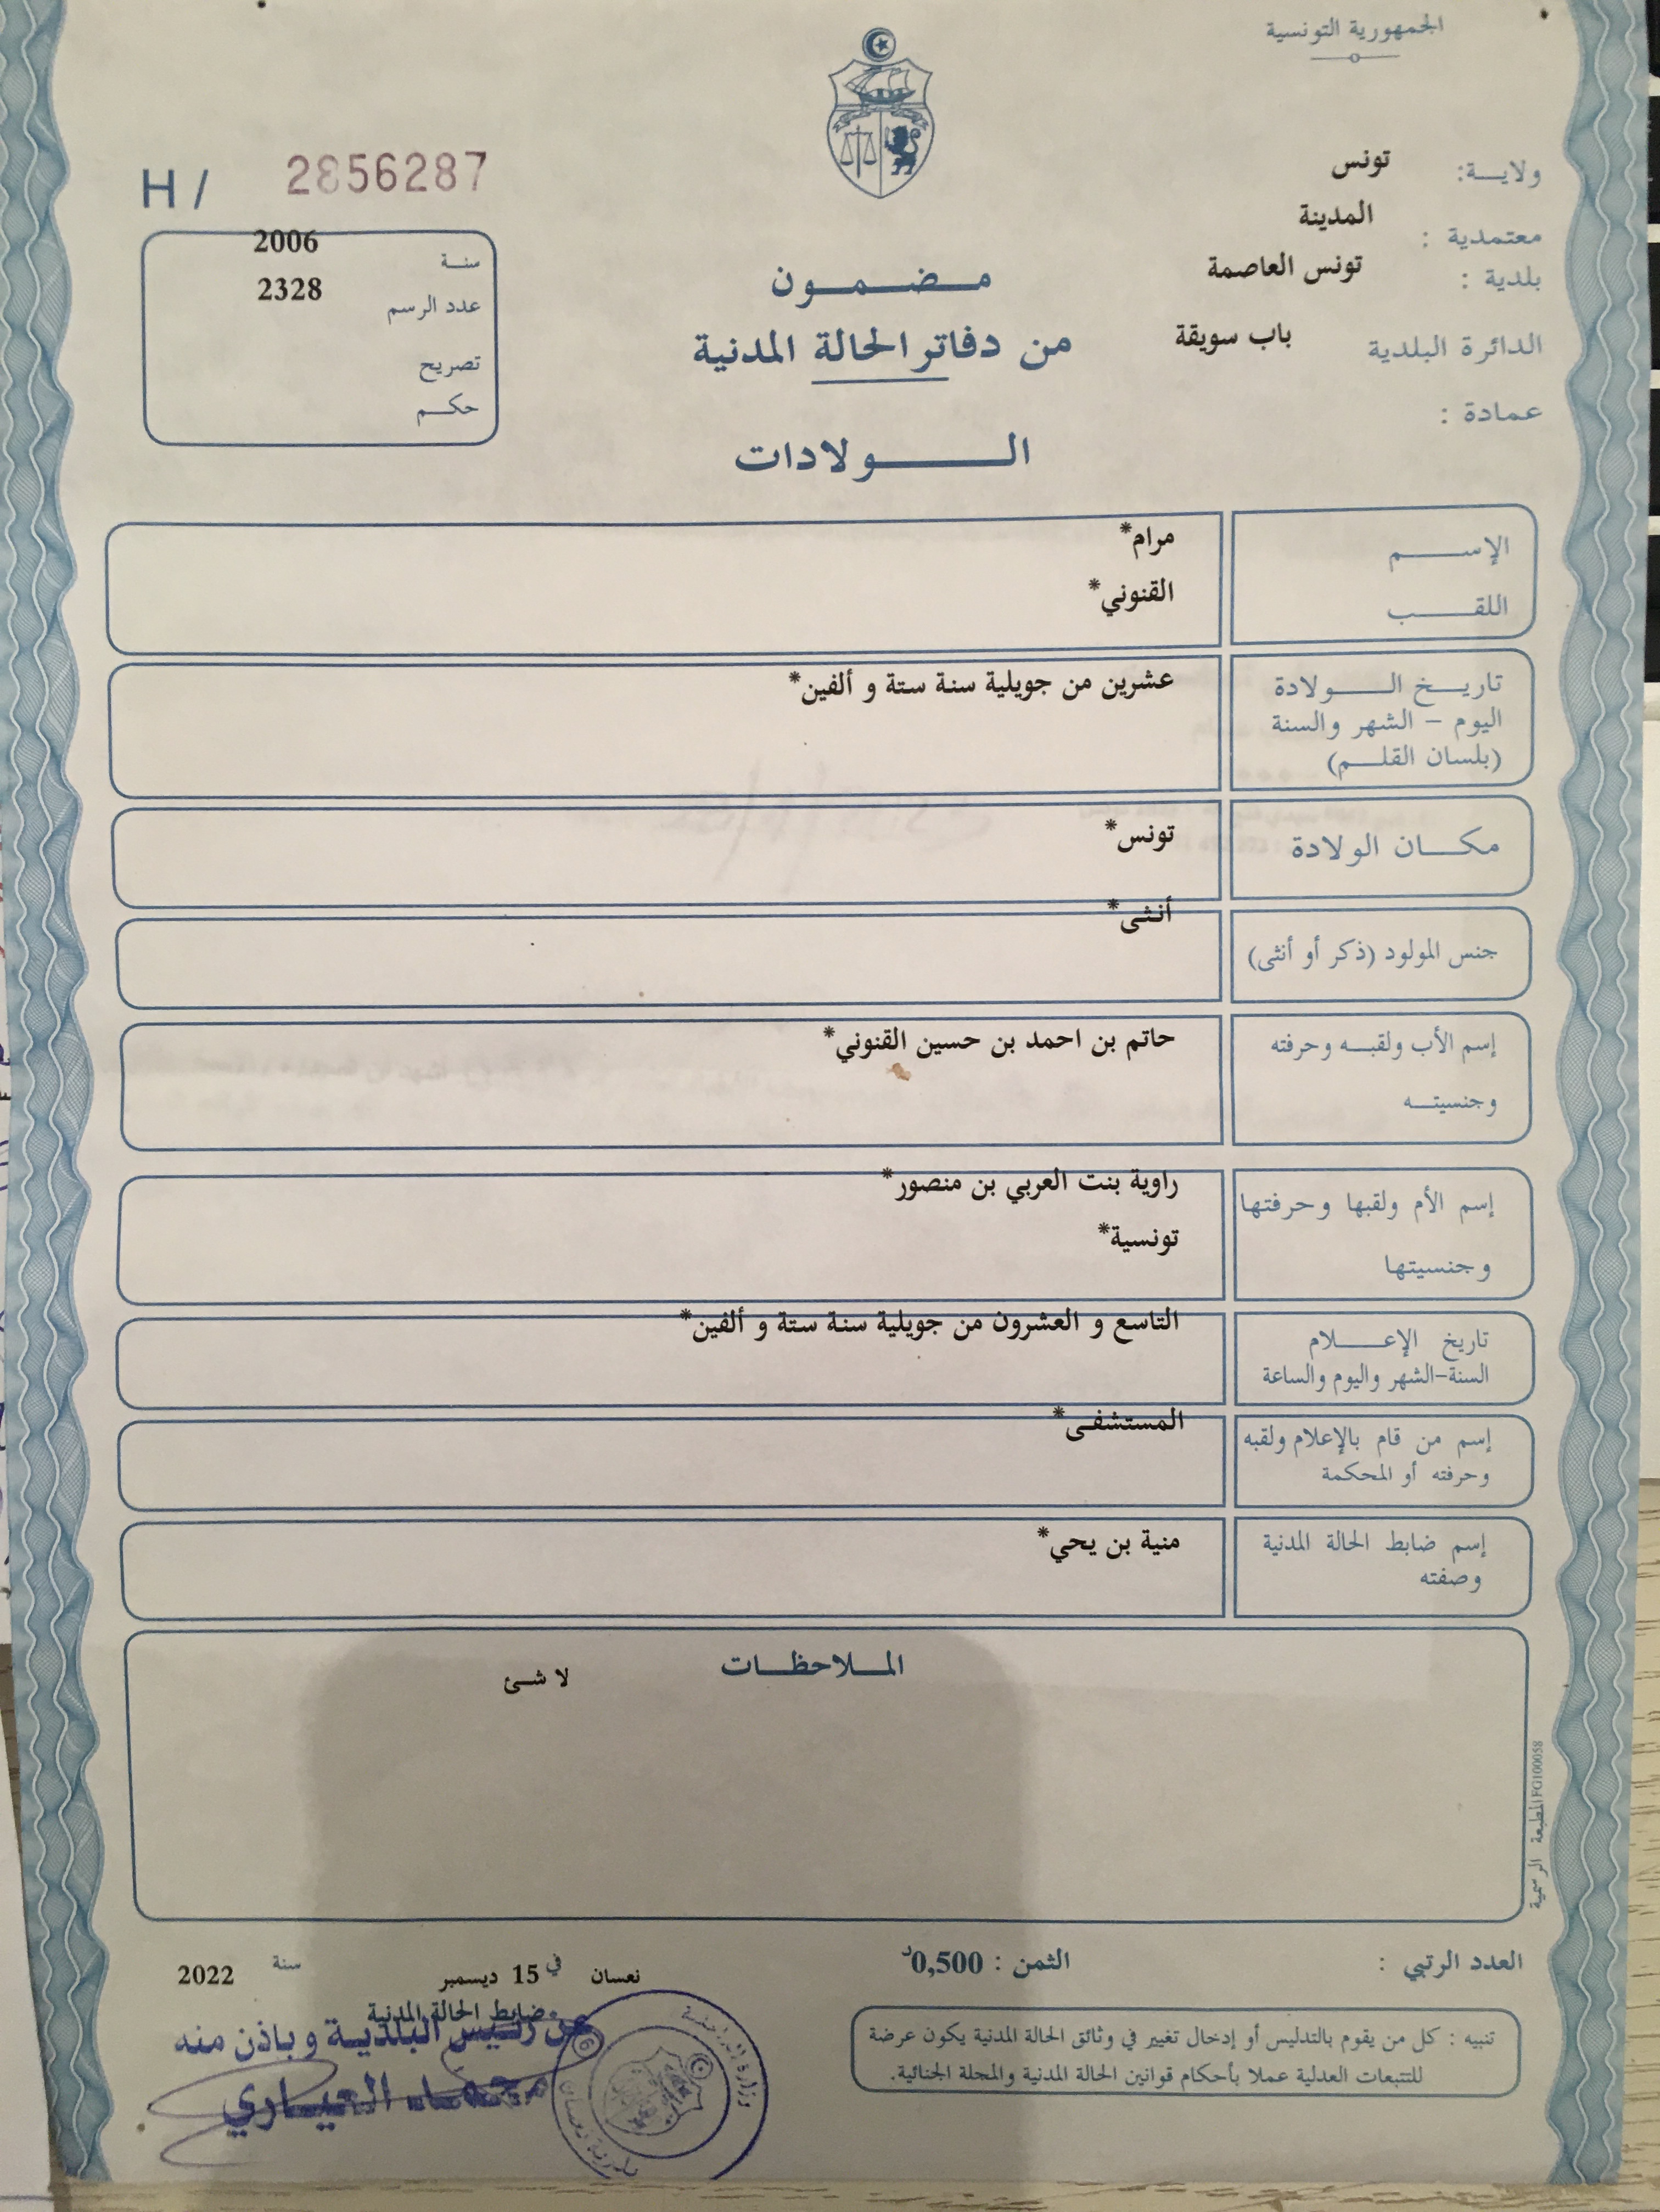 الجمهورية التونسية
ولايـــة: تونس
معتمدية : المدينة
بلدية : تونس العاصمة
الدائرة البلدية باب سويقة
عمادة :
H / 2856287
سنـة 2006
عدد الرسم 2328
تصريح
حكـم
مـضـمـون
من دفاتر الحالة المدنية
الـــولادات
الإســـم مرام*
اللقـــب القنوني*
تاريـخ الـــولادة عشرين من جويلية سنة ستة و ألفين*
اليوم – الشهر والسنة
(بلسان القلـم)
مكـان الولادة تونس*
جنس المولود (ذكر أو أنثى) أنثى*
إسم الأب ولقبـه وحرفته حاتم بن احمد بن حسين القنوني*
وجنسيتـه
إسم الأم ولقبها وحرفتها راوية بنت العربي بن منصور*
وجنسيتها تونسية*
تاريخ الإعـــلام التاسع و العشرون من جويلية سنة ستة و ألفين*
السنة-الشهر واليوم والساعة
إسم من قام بالإعلام ولقبه المستشفى*
وحرفته أو المحكمة
إسم ضابط الحالة المدنية منية بن يحي*
وصفته
المـلاحظـات
لا شئ
المطبعة الرسمية FG100058
العدد الرتبي :
الثمن : 0,500د
نعسان في 15 ديسمبر سنة 2022
ضابط الحالة المدنية
عن رئيس البلدية وباذن منه
محمد العياري
تنبيه : كل من يقوم بالتدليس أو إدخال تغيير في وثائق الحالة المدنية يكون عرضة
للتتبعات العدلية عملا بأحكام قوانين الحالة المدنية والمجلة الجنائية.